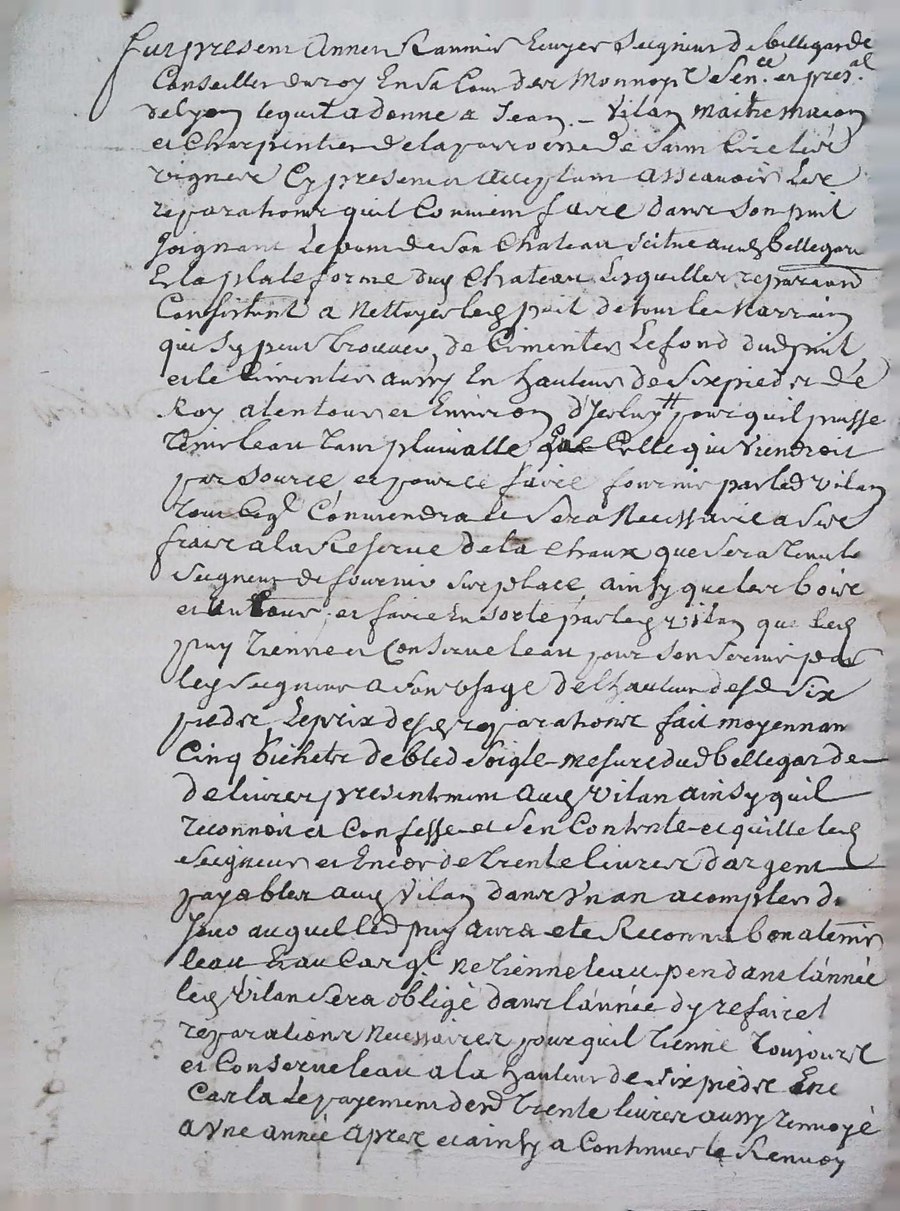 fut present Annes Ramier Ecuyer Seigneur de bellegarde
Conseiller du roy En Sa Cour des Monnoyes Sen.ce et pres.al
de lyon lequel a donne a Jean - Vilan maitre macon
et Charpentier de la parroisse de Saint Cire les
vignes Cy present et acceptant asseavoir Les
reparations quil Convient faire dans Son puit
joignant Le pont de Son Chateau scitue aud bellegarde
Et la plate forme dud Chateau Lesquelles reparaons
Consistent a Nettoyer led puit de tous les Marrains
qui Sy peuvent trouver, de Cimenter Le fond dud puit
et le Cimenter aussy En hauteur de Six pieds de
Roy alentour et Environ pour quil puisse
tenir leau tant pluvialle que Celle qui Viendroit
par Source et pour ce faire fournir par led vilan
tout Ceq Conviendra et Sera Necessaire a Ses
frais a la Reserve de la Chaux que Sera tenu le
Seigneur de fournir Sur place, ainsy que les bois
et faire En Sorte par led vilan que led
puy tienne et Conserve leau pour sen Servir par
led Seigneur a Son Usage de lhauteur desd Six
pieds Le prix desd reparations fait moyennan
Cinq bichets de bled Soigle mesure dud bellegarde
delivrer presentement aud Vilan ainsy quil
reconnoit et Confesse et Sen Contente et quitte led
Seigneur et Encor de trente livres dargent
payables aud Vilan dans Vnan a compter du
Jour auquel led puy aura ete Reconnu bon a tenir
leau Et au Cas q. Ne tienne leau pendant lánnée
led Vilan Sera obligé dans lánnée dy refaire l
reparations Necessaires pour quil tienne toujours
et Conserve leau a la hauteur de Six pieds En ce
Cas la Le payement desd trente livres aussy renvoyé
a Vne année apres et ainsy a Continuer le Renvoy